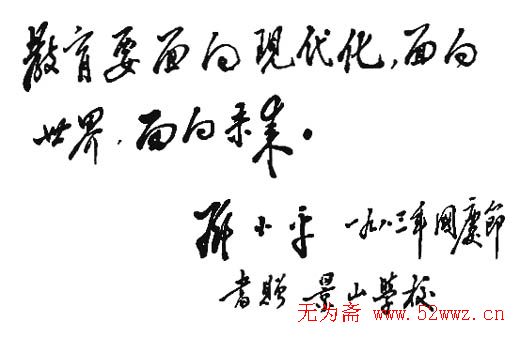 教育要面向现代化,面向
世界,面向未来。
邓小平 一九八三年國慶節
書赠 景山學校
无为斋 www.52wwz.cn